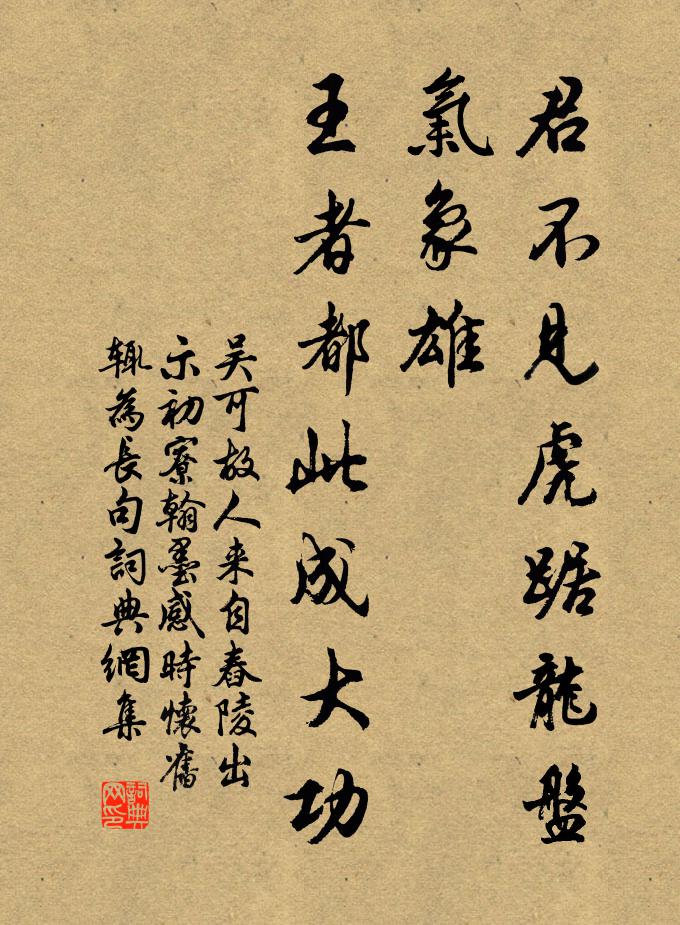 君不見虎踞龍盤
氣象雄
王者都此成大功
吳可故人来自舂陵出
示初寮翰墨感時懷舊
輒為長句詞典網集
詞典
网印